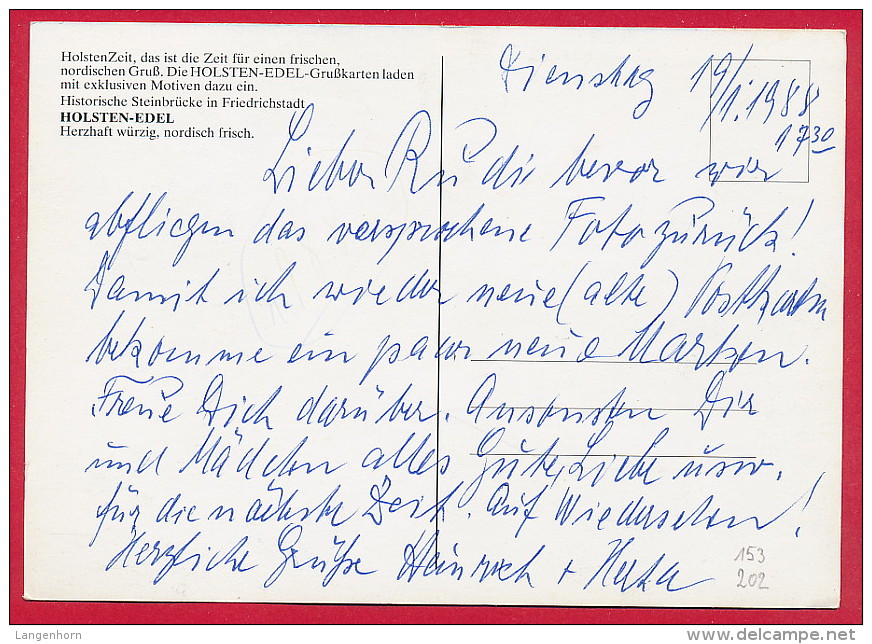 HolstenZeit, das ist die Zeit für einen frischen,
nordischen Gruß. Die HOLSTEN-EDEL-Grußkarten laden
mit exklusiven Motiven dazu ein.
Historische Steinbrücke in Friedrichstadt
HOLSTEN-EDEL
Herzhaft würzig, nordisch frisch.
Dienstag 19/1.1988
17³⁰
Lieber Rudi bevor wir
abfliegen das versprochene Foto zurück!
Damit ich wieder neue (alte) Postkarten
bekomme ein paar neue Marken.
Freue Dich darüber. Ansonsten Dir
und Mädchen alles Gute, Liebe usw.
für die nächste Zeit. Auf Wiedersehen!
Herzliche Grüße Heinrich +
153
202
Langenhorn
delcampe.net